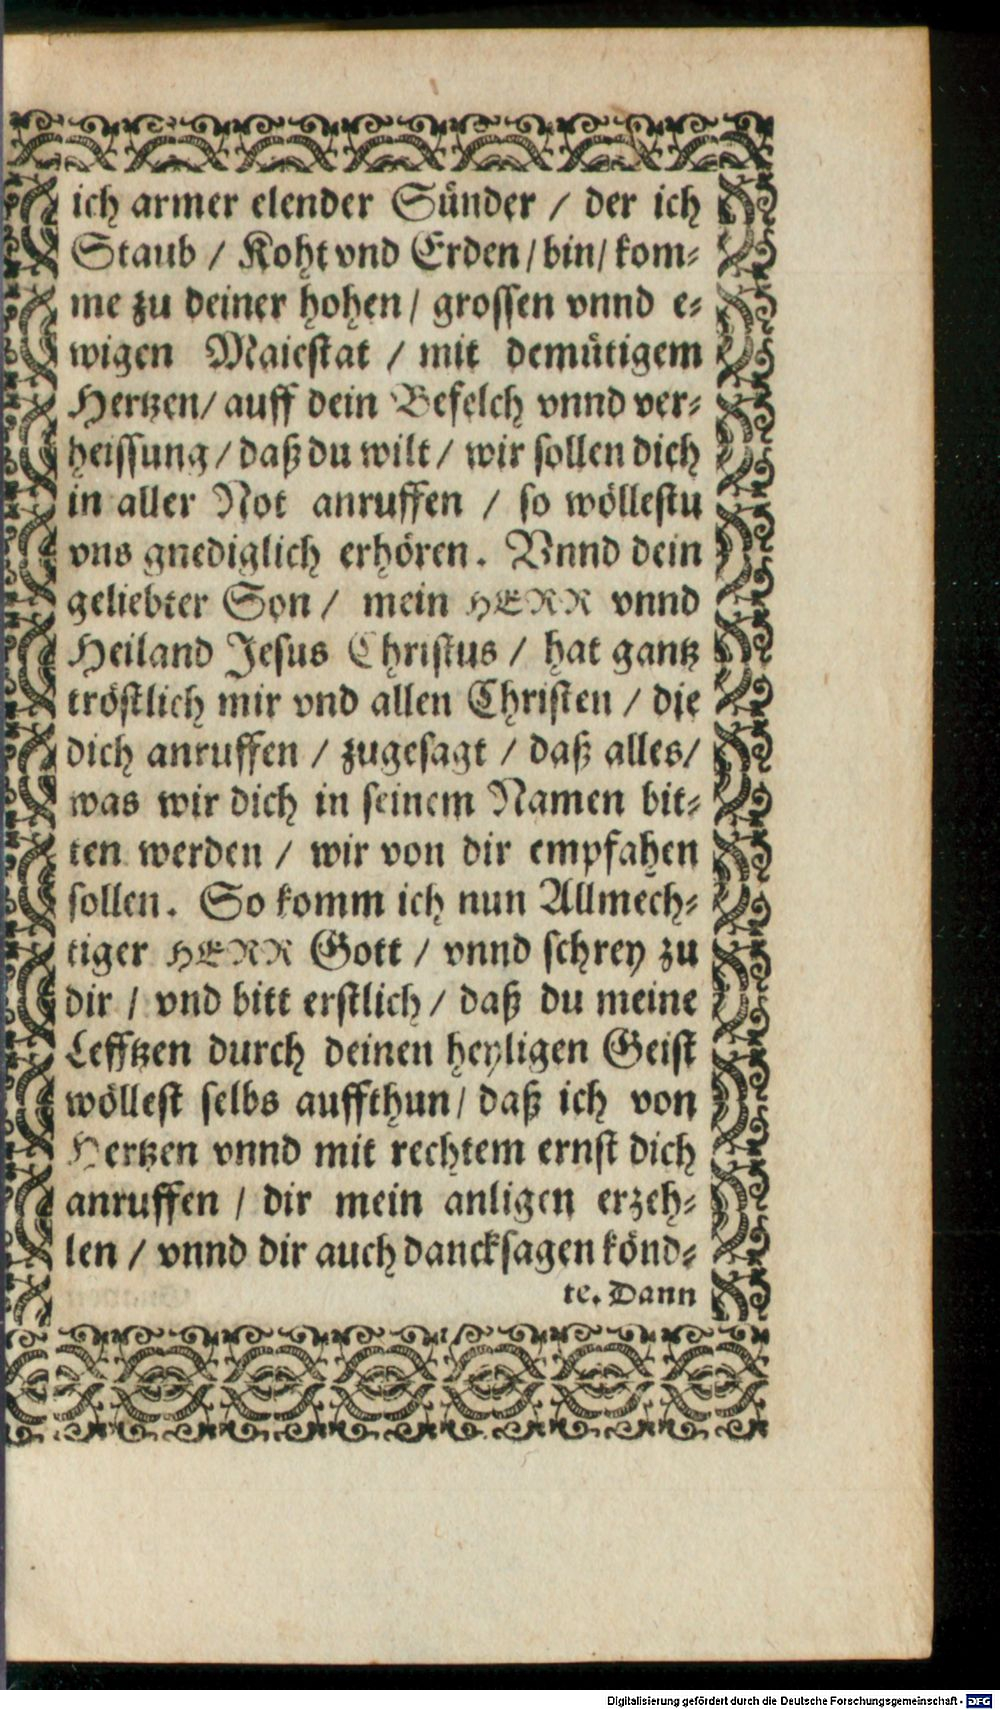 ich armer elender Sünder / der ich
Staub / Koht vnd Erden / bin / kom⸗
me zu deiner hohen / grossen vnnd e⸗
wigen Maiestat / mit demütigem
Hertzen / auff dein Befelch vnnd ver⸗
heissung / daß du wilt / wir sollen dich
in aller Not anruffen / so wöllestu
vns gnediglich erhören. Vnnd dein
geliebter Son / mein HERR vnnd
Heiland Jesus Christus / hat gantz
tröstlich mir vnd allen Christen / die
dich anruffen / zugesagt / daß alles /
was wir dich in seinem Namen bit⸗
ten werden / wir von dir empfahen
sollen. So komm ich nun Allmech⸗
tiger HERR Gott / vnnd schrey zu
dir / vnd bitt erstlich / daß du meine
Lefftzen durch deinen heyligen Geist
wöllest selbs auffthun / daß ich von
Hertzen vnnd mit rechtem ernst dich
anruffen / dir mein anligen erzeh⸗
len / vnnd dir auch dancksagen könd⸗
te. Dann
Digitalisierung gefördert durch die Deutsche Forschungsgemeinschaft - DFG